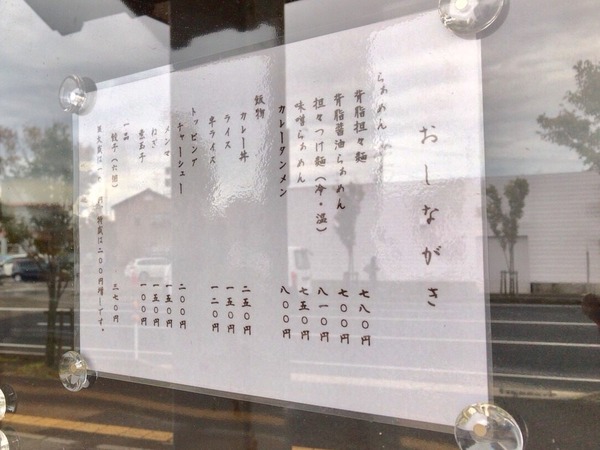 おしながき
らぁめん
背脂担々麺 七八〇円
背脂醤油らぁめん 七〇〇円
担々つけ麺(冷・温) 八一〇円
味噌らぁめん 七五〇円
カレータンメン 八〇〇円
飯物
カレー丼 二五〇円
ライス 一五〇円
半ライス 一二〇円
トッピング
チャーシュー 二〇〇円
メンマ 一五〇円
ねぎ 一五〇円
煮玉子 一〇〇円
一品
餃子(六個) 三七〇円
は二〇〇円増しです。